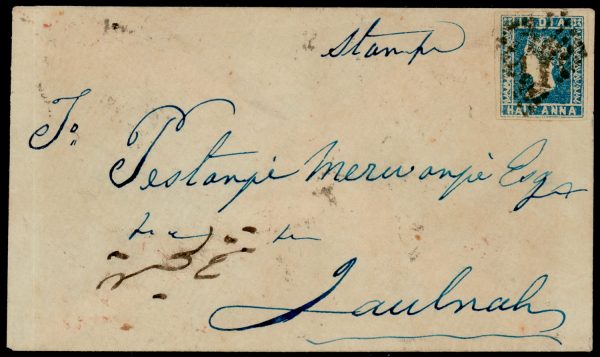 Stamp
INDIA
HALF ANNA
To
Pestonjee Merwanjee Esq
Jaulnah